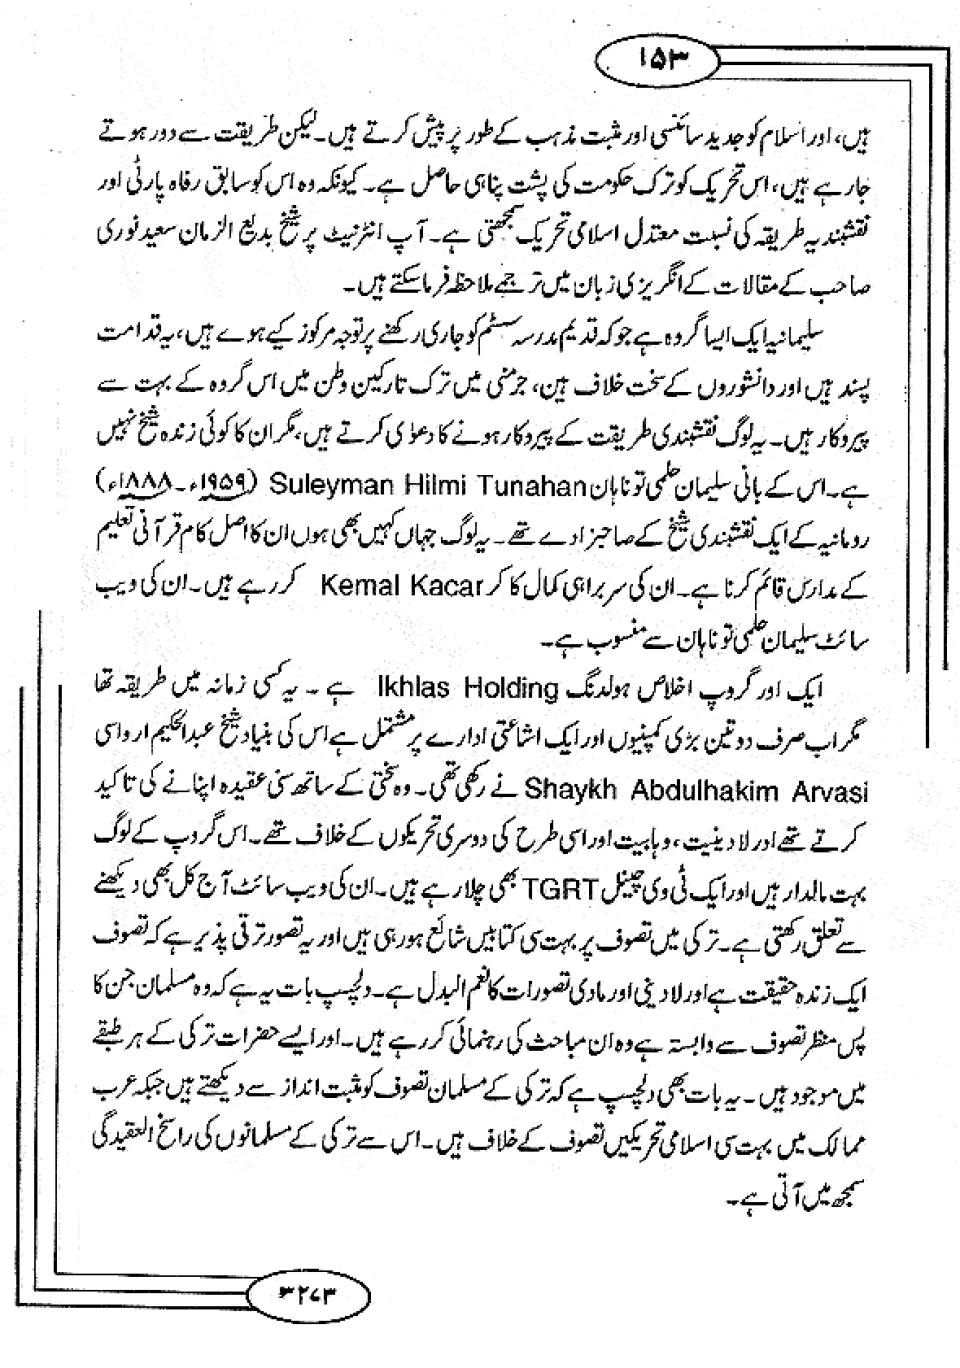 ۱۵۳
ہیں، اور اسلام کو جدید سائنسی اور مثبت مذہب کے طور پر پیش کرتے ہیں۔ لیکن طریقت سے دور ہوتے
جارہے ہیں، اس تحریک کو ترک حکومت کی پشت پناہی حاصل ہے۔ کیونکہ وہ اس کو سابق رفاہ پارٹی اور
نقشبندیہ طریقہ کی نسبت معتدل اسلامی تحریک سمجھتی ہے۔ آپ انٹرنیٹ پر شیخ بدیع الزمان سعید نوری
صاحب کے مقالات کے انگریزی زبان میں ترجمے ملاحظہ فرماسکتے ہیں۔
سلیمانیہ ایک ایسا گروہ ہے جو کہ قدیم مدرسہ سسٹم کو جاری رکھنے پر توجہ مرکوز کیے ہوے ہیں، یہ قدامت
پسند ہیں اور دانشوروں کے سخت خلاف ہین، جرمنی میں ترک تارکین وطن میں اس گروہ کے بہت سے
پیروکار ہیں۔ یہ لوگ نقشبندی طریقت کے پیروکار ہونے کا دعوٰی کرتے ہیں، مگر ان کا کوئی زندہ شیخ نہیں
ہے۔ اس کے بانی سلیمان حلمی توناہان Suleyman Hilmi Tunahan (۱۹۵۹ء۔۱۸۸۸ء)
رومانیہ کے ایک نقشبندی شیخ کے صاحبزادے تھے۔ یہ لوگ جہاں کہیں بھی ہوں ان کا اصل کام قرآنی تعلیم
کے مدارس قائم کرنا ہے۔ ان کی سربراہی کمال کاکر Kemal Kacar کررہے ہیں۔ ان کی ویب
سائٹ سلیمان حلمی توناہان سے منسوب ہے۔
ایک اور گروپ اخلاص ہولڈنگ Ikhlas Holding ہے ۔ یہ کسی زمانہ میں طریقہ تھا
مگر اب صرف دو تین بڑی کمپنیوں اور ایک اشاعتی ادارے پر مشتمل ہے اس کی بنیاد شیخ عبدالحکیم ارواسی
Shaykh Abdulhakim Arvasi نے رکھی تھی۔ وہ سختی کے ساتھ سنی عقیدہ اپنانے کی تاکید
کرتے تھے اور لادینیت، وہابیت اور اسی طرح کی دوسری تحریکوں کے خلاف تھے۔ اس گروپ کے لوگ
بہت مالدار ہیں اور ایک ٹی وی چینل TGRT بھی چلا رہے ہیں۔ ان کی ویب سائٹ آج کل بھی دیکھنے
سے تعلق رکھتی ہے۔ ترکی میں تصوف پر بہت سی کتابیں شائع ہورہی ہیں اور یہ تصور ترقی پذیر ہے کہ تصوف
ایک زندہ حقیقت ہے اور لادینی اور مادی تصورات کا نعم البدل ہے۔ دلچسپ بات یہ ہے کہ وہ مسلمان جن کا
پس منظر تصوف سے وابستہ ہے وہ ان مباحث کی رہنمائی کررہے ہیں۔ اور ایسے حضرات ترکی کے ہر طبقے
میں موجود ہیں۔ یہ بات بھی دلچسپ ہے کہ ترکی کے مسلمان تصوف کو مثبت انداز سے دیکھتے ہیں جبکہ عرب
ممالک میں بہت سی اسلامی تحریکیں تصوف کے خلاف ہیں۔ اس سے ترکی کے مسلمانوں کی راسخ العقیدگی
سمجھ میں آتی ہے۔
۳۲۷۳